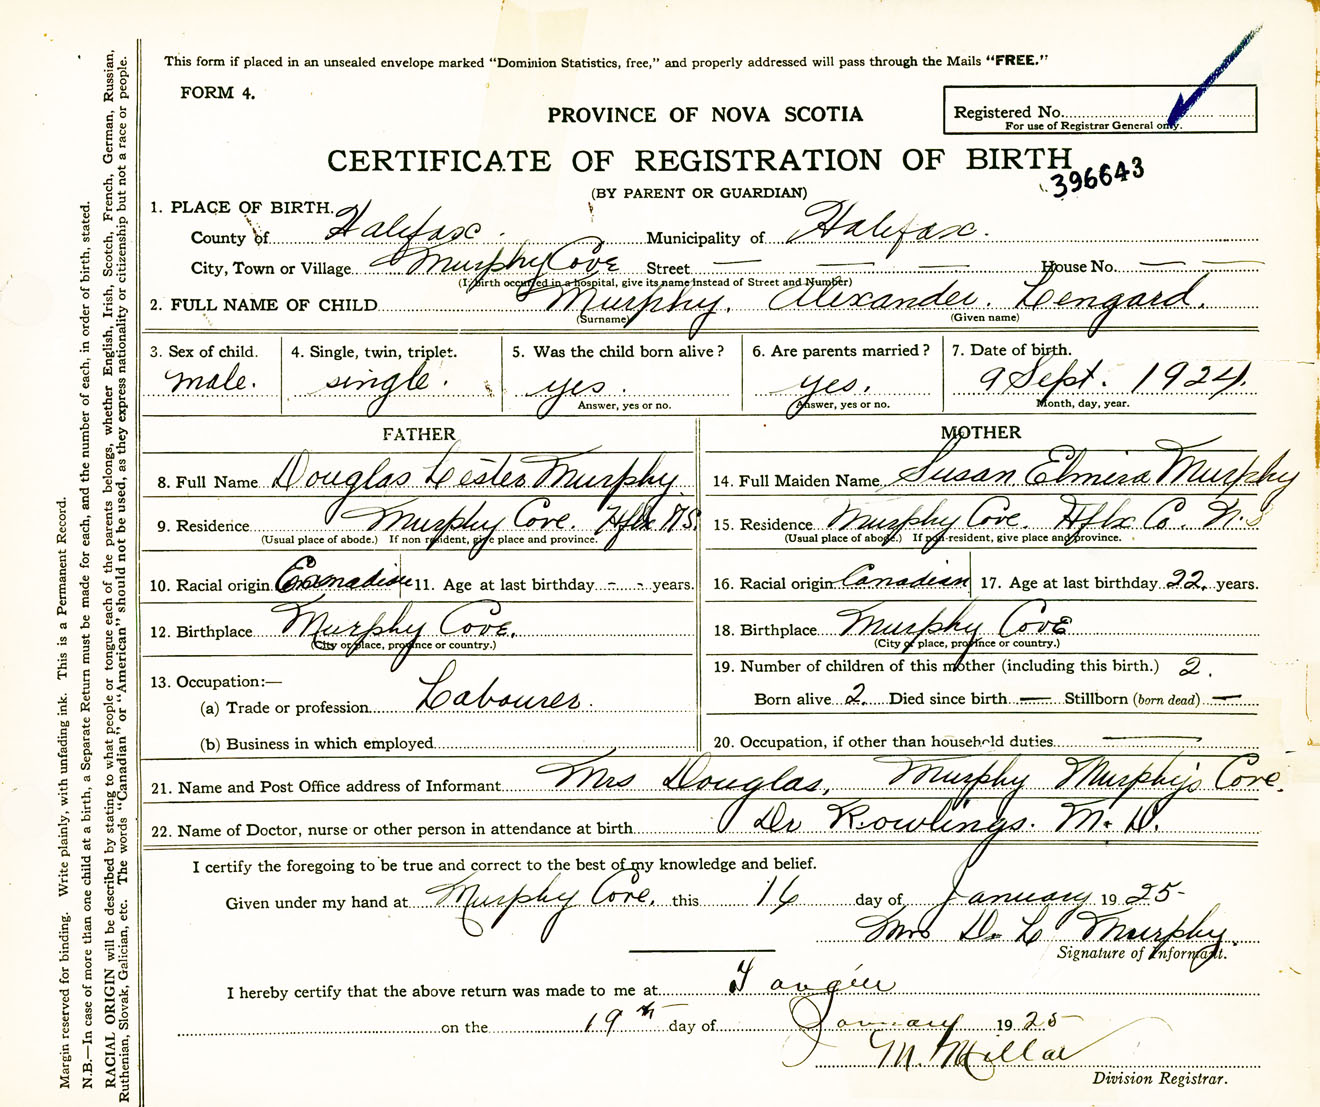 This form if placed in an unsealed envelope marked "Dominion Statistics, free," and properly addressed will pass through the Mails "FREE."
FORM 4.
PROVINCE OF NOVA SCOTIA
Registered No.
For use of Registrar General only.
CERTIFICATE OF REGISTRATION OF BIRTH
396643
(BY PARENT OR GUARDIAN)
1. PLACE OF BIRTH.
County of Halifax. Municipality of Halifax.
City, Town or Village Murphy Cove Street — — — House No. — —
(If birth occurred in a hospital, give its name instead of Street and Number)
2. FULL NAME OF CHILD Murphy, Alexander. Lengard.
(Surname) (Given name)
3. Sex of child. 4. Single, twin, triplet. 5. Was the child born alive? 6. Are parents married? 7. Date of birth.
male. single. yes. yes. 9 Sept. 1924.
Answer, yes or no. Answer, yes or no. Month, day, year.
FATHER MOTHER
8. Full Name Douglas Lester Murphy 14. Full Maiden Name Susan Elmira Murphy
9. Residence Murphy Cove. Hfx N.S. 15. Residence Murphy Cove. Hfx Co. N.S
(Usual place of abode.) If non resident, give place and province. (Usual place of abode.) If non-resident, give place and province.
10. Racial origin Canadian 11. Age at last birthday - - years. 16. Racial origin Canadian 17. Age at last birthday 22. years.
12. Birthplace Murphy Cove. 18. Birthplace Murphy Cove
(City or place, province or country.) (City or place, province or country.)
13. Occupation:— 19. Number of children of this mother (including this birth.) 2.
(a) Trade or profession Labourer. Born alive 2. Died since birth — Stillborn (born dead) —
(b) Business in which employed 20. Occupation, if other than household duties —
21. Name and Post Office address of Informant Mrs Douglas, Murphy Murphy's Cove.
22. Name of Doctor, nurse or other person in attendance at birth Dr Rowlings. M. D.
I certify the foregoing to be true and correct to the best of my knowledge and belief.
Given under my hand at Murphy Cove. this 16 day of January 1925-
Mrs D. L Murphy.
Signature of Informant.
I hereby certify that the above return was made to me at Tangier
on the 19th day of January 1925
M. Millar
Division Registrar.
Margin reserved for binding. Write plainly, with unfading ink. This is a Permanent Record.
N.B.—In case of more than one child at a birth, a Separate Return must be made for each, and the number of each, in order of birth, stated.
RACIAL ORIGIN will be described by stating to what people or tongue each of the parents belongs, whether English, Irish, Scotch, French, German, Russian,
Ruthenian, Slovak, Galician, etc. The words "Canadian" or "American" should not be used, as they express nationality or citizenship but not a race or people.